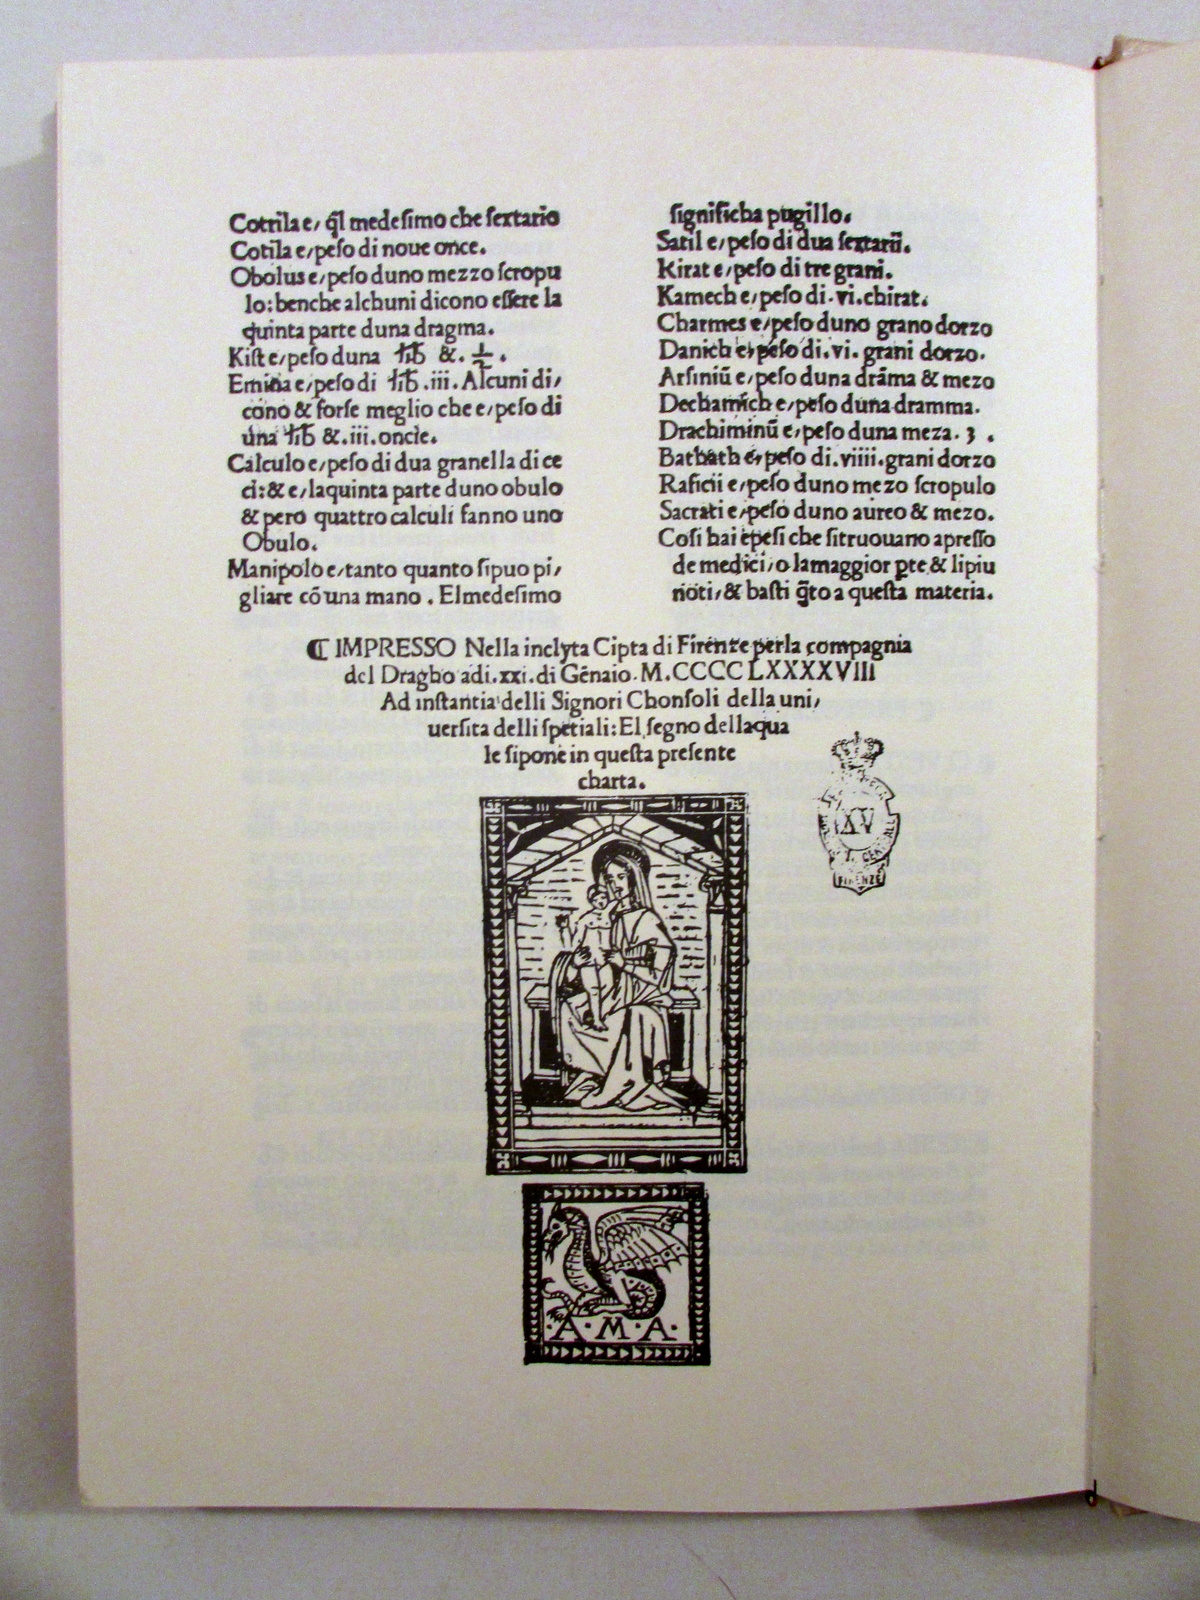 Cottila e, q̃l medesimo che sextario
Cotila e,peso di noue once.
Obolus e,peso duno mezzo scropu
lo:benche alchuni dicono essere la
quinta parte duna dragma.
Kist e,peso duna lib &. ½ .
Emina e,peso di lib .iii. Alcuni di,
cono & forse meglio che e,peso di
una lib &.iii.oncie.
Calculo e,peso di dua granella di ce
ci:& e,laquinta parte duno obulo
& pero quattro calculi fanno uno
Obulo.
Manipolo e,tanto quanto sipuo pi,
gliare cõ una mano . Elmedesimo
significha pugillo.
Satil e,peso di dua sextarii.
Kirat e,peso di tre grani.
Kamech e,peso di.vi.chirat.
Charmes e,peso duno grano dorzo
Danich e,peso di.vi. grani dorzo.
Arsiniũ e,peso duna drãma & mezo
Dechamich e,peso duna dramma.
Drachiminũ e,peso duna meza. ʒ .
Bathath e,peso di.viiii.grani dorzo
Raficii e,peso duno mezo scropulo
Sacrati e,peso duno aureo & mezo.
Cosi hai epesi che sitruouano apresso
de medici,o lamaggior ꝑte,& lipiu
noti,& basti q̃to a questa materia.
⁋ IMPRESSO Nella inclyta Cipta di Firenze perla compagnia
del Dragho adi.xxi.di Gẽnaio. M.CCCC LXXXXVIII
Ad instantia delli Signori Chonsoli della uni,
uersita delli spetiali:El segno dellaqua
le sipone in questa presente
charta.
XV
FIRENZE
·A·M·A·